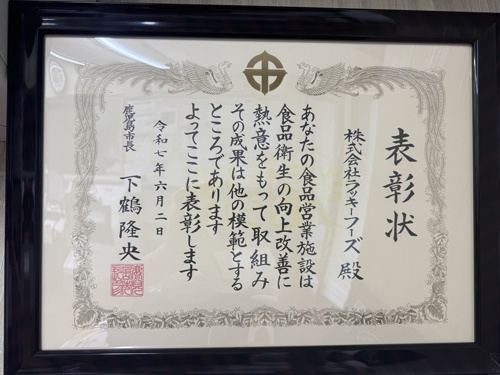 表彰状
株式会社ラッキーフーズ 殿
あなたの食品営業施設は
食品衛生の向上改善に
熱意をもって取組み
その成果は他の模範とする
ところであります
よってここに表彰します
令和七年六月二日
鹿児島市長 下鶴隆央